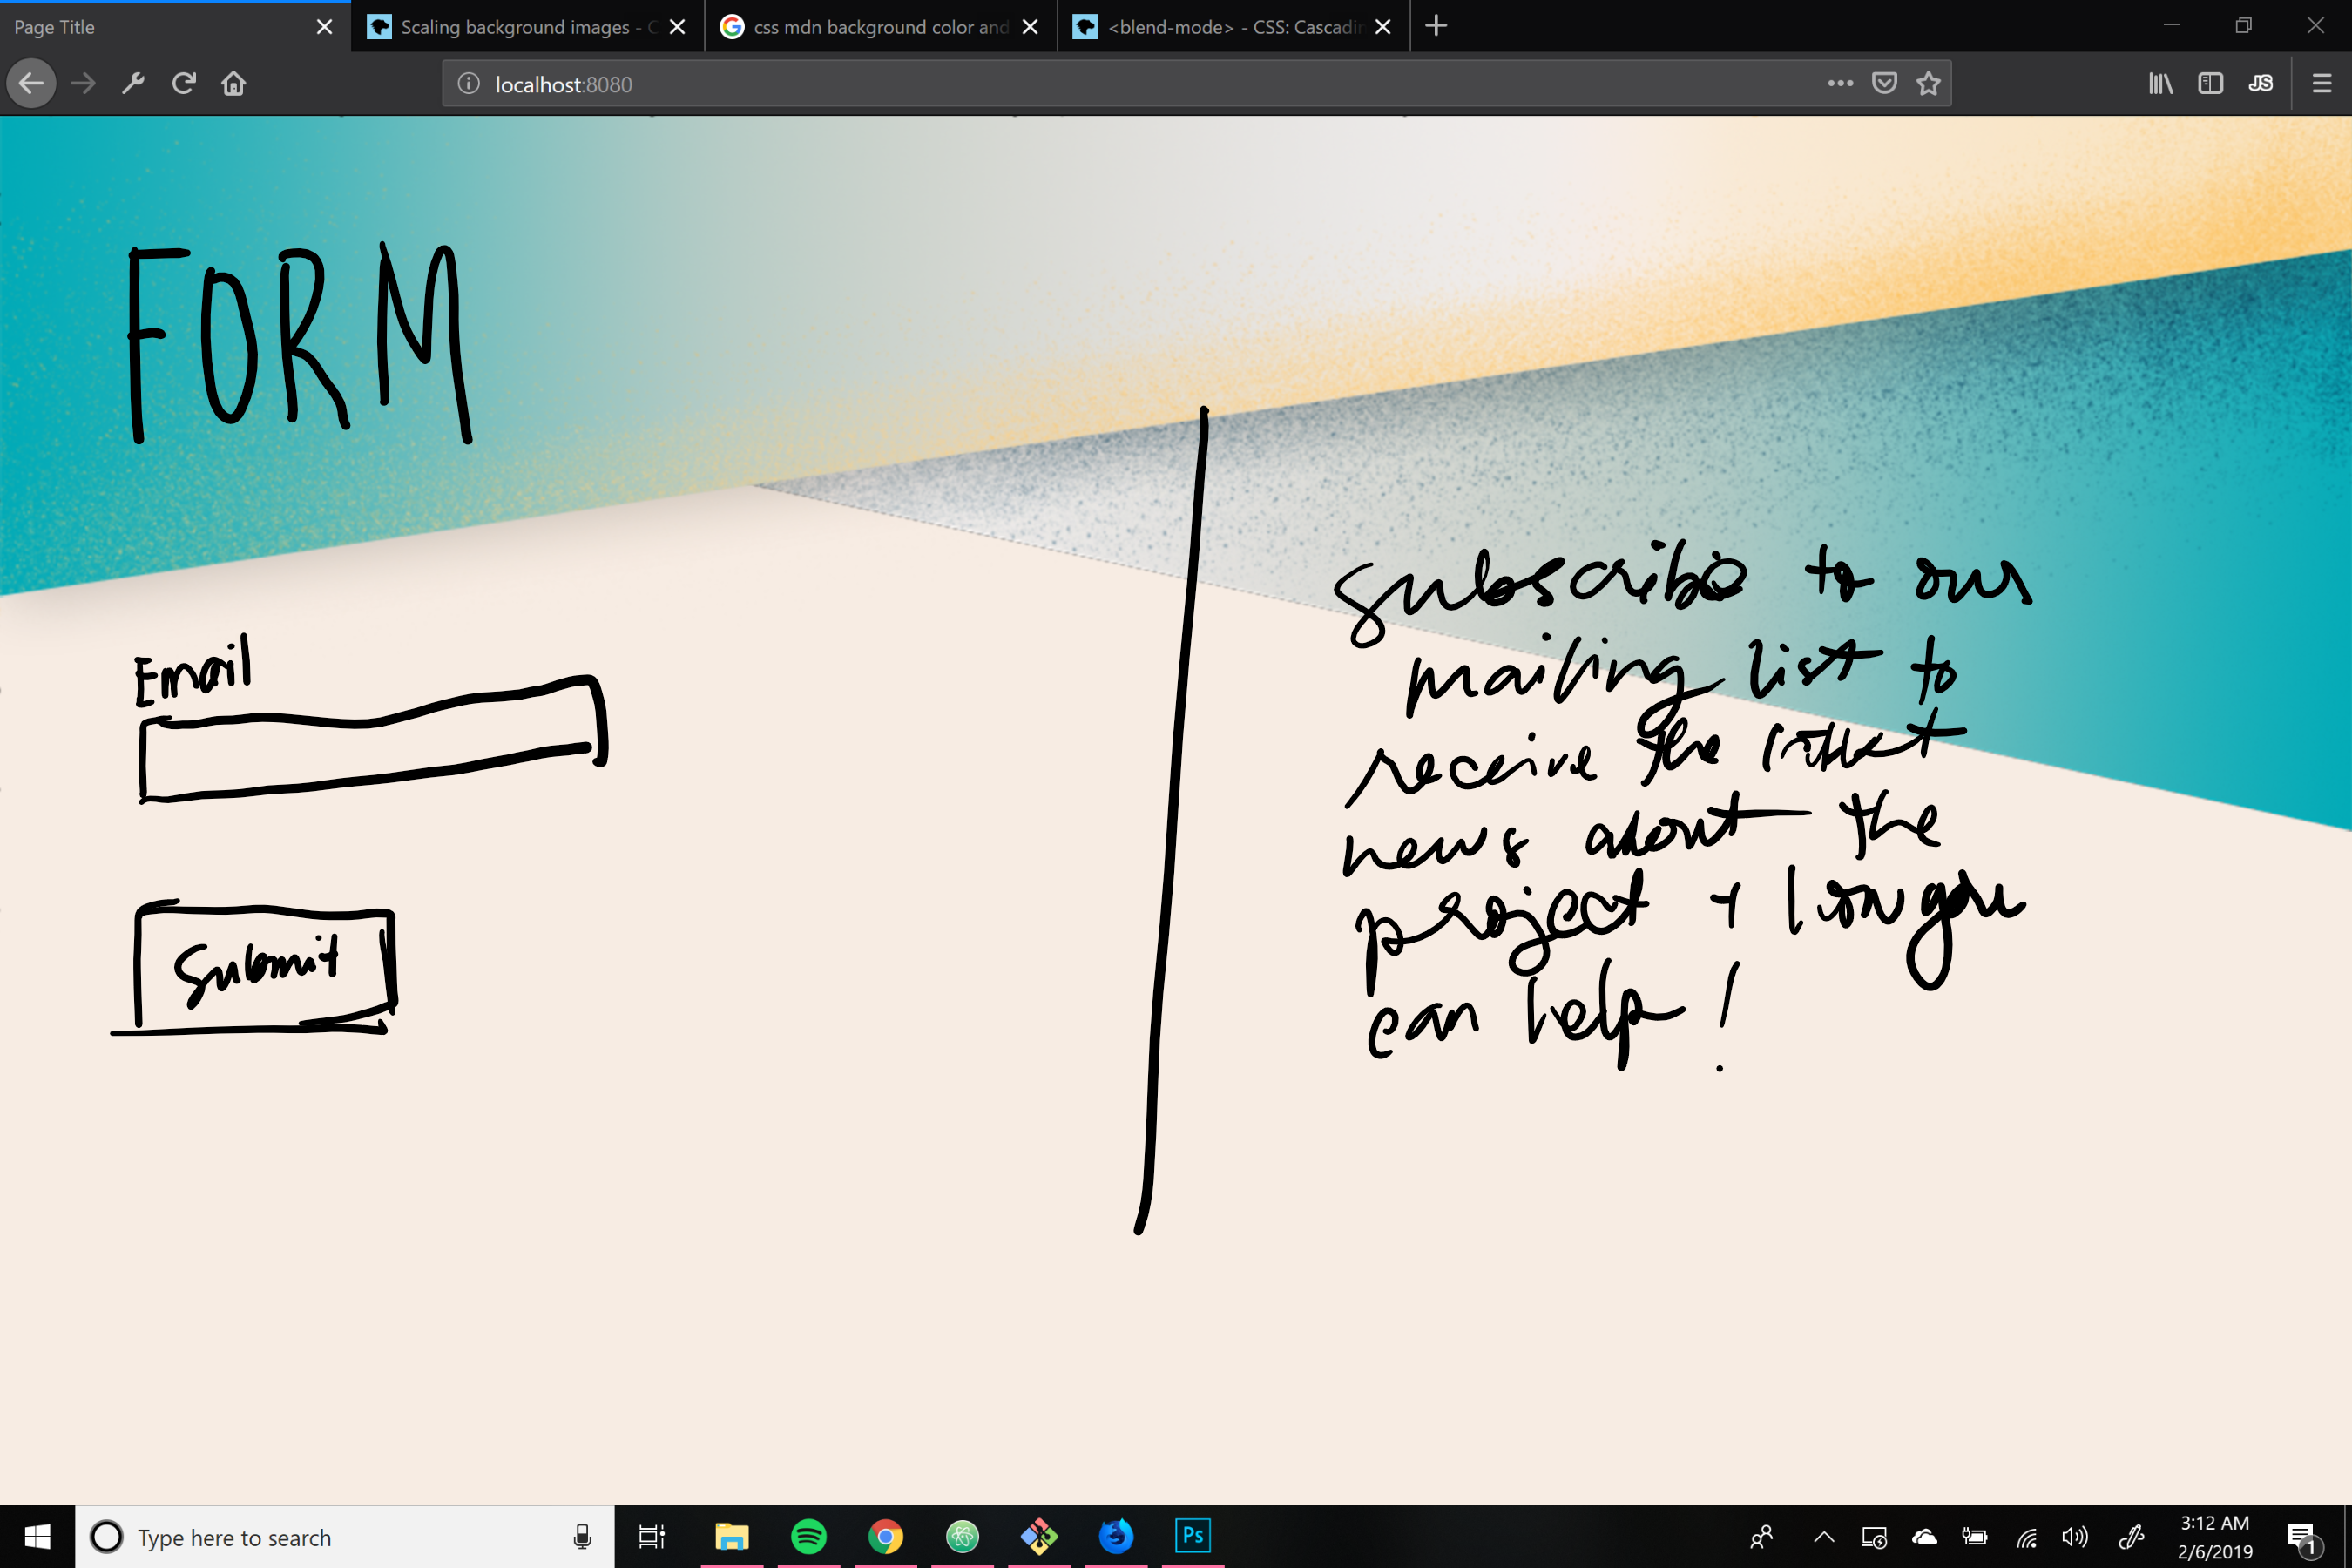 Page Title
Scaling background images - C
css mdn background color and
<blend-mode> - CSS: Cascadin
localhost:8080
JS
FORM
Email
Submit
subscribe to our
mailing list to
receive the latest
news about the
project + how you
can help!
Type here to search
Ps
3:12 AM
2/6/2019
1